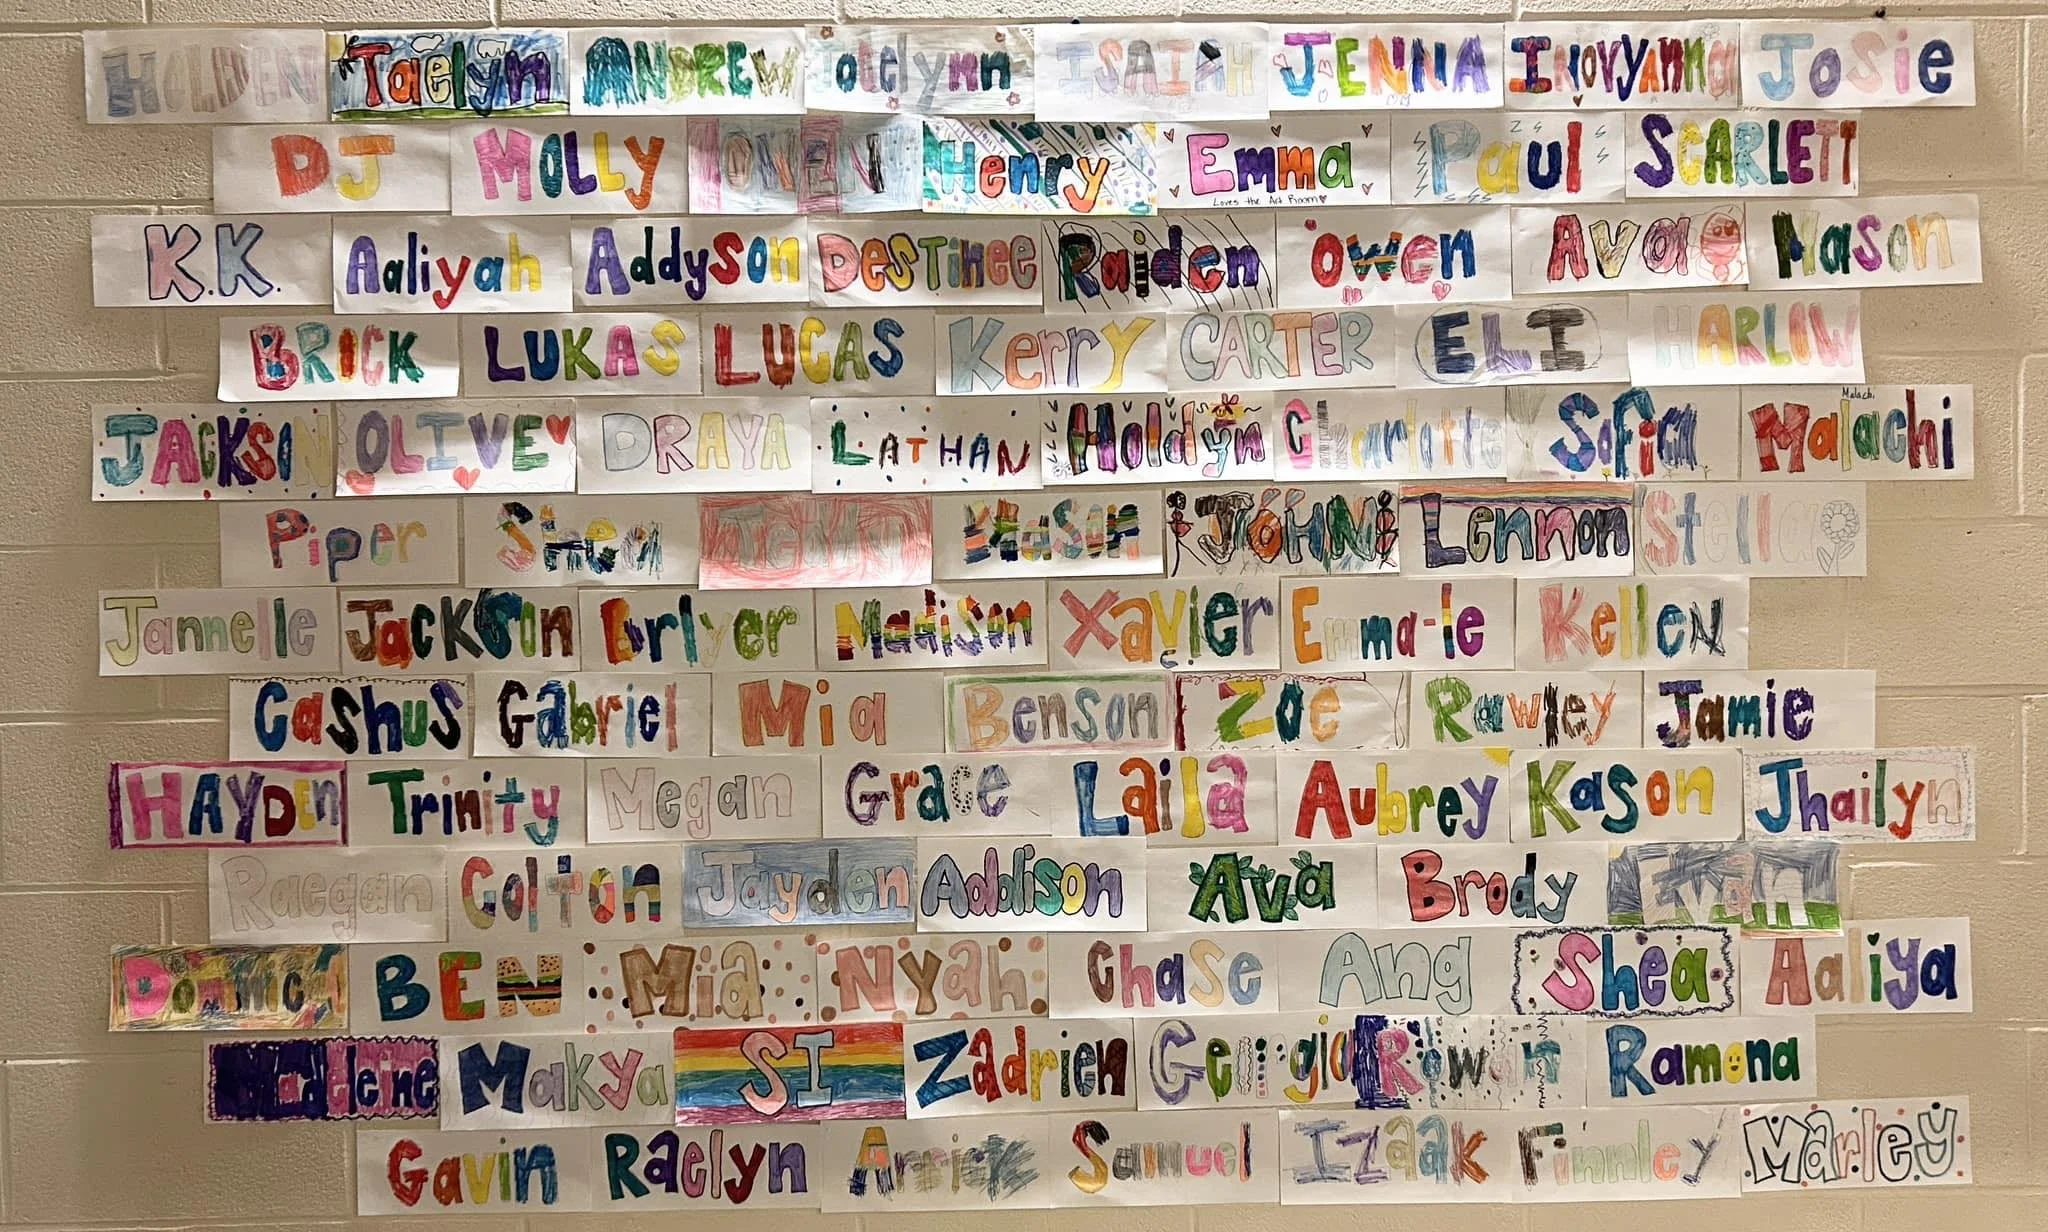 HOLDEN Taelyn ANDREW Jocelynn ISAIAH JENNA INOVYANNA Josie
DJ MOLLY OWEN Henry Emma Paul SCARLETT
Loves the Art Room
K.K. Aaliyah Addyson DESTINEE Raiden Owen Ava Mason
BRICK LUKAS LUCAS Kerry CARTER ELI HARLOW
Malachi
JACKSON OLIVE DRAYA LATHAN Holdyn Charlotte Sofia Malachi
Piper Mason JOHN Lennon Stella
Jannelle Jackson Madison Xavier Emma-le Kellen
Cashus Gabriel Mia Benson Zoe Rawley Jamie
HAYDEN Trinity Megan Grace Laila Aubrey Kason Jhailyn
Raegan Colton Jayden Addison Ava Brody Evan
Dominick BEN Mia Nyah Chase Ang Shea Aaliya
Madeleine Makya SI Zadrien Georgia Rowan Ramona
Gavin Raelyn Samuel Izaak Finnley Marley